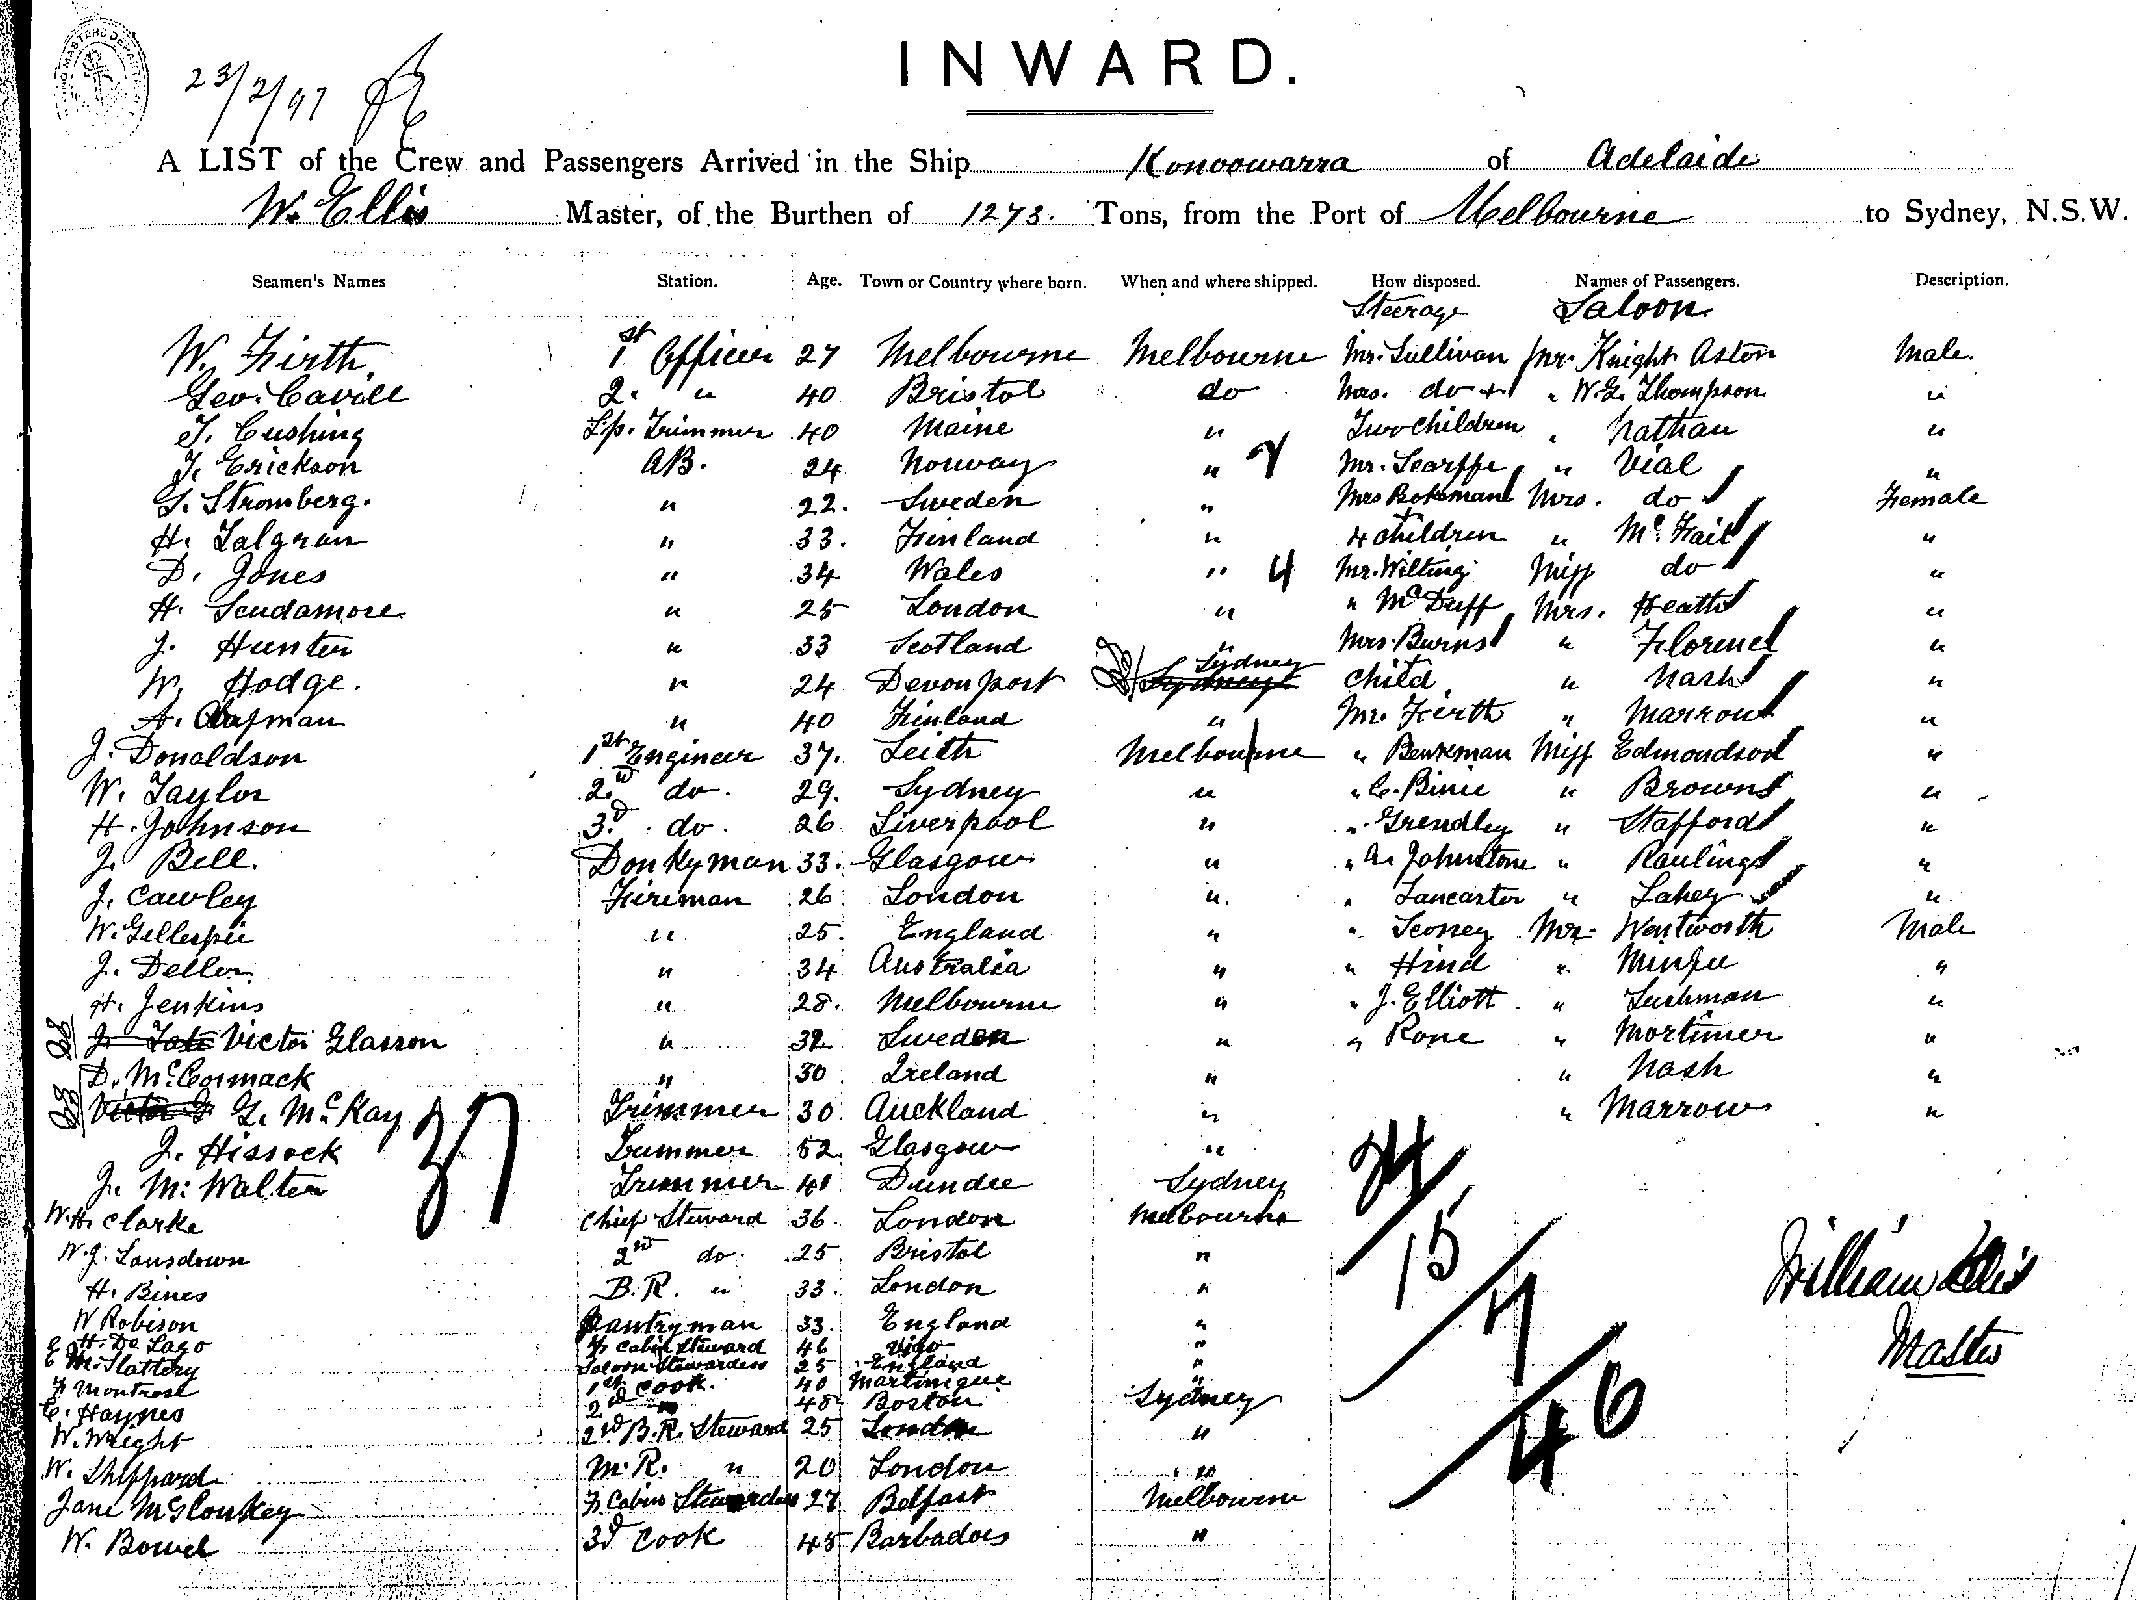 23/2/97
INWARD.
A LIST of the Crew and Passengers Arrived in the Ship Konoowarra of Adelaide
W. Ellis Master, of the Burthen of 1273. Tons, from the Port of Melbourne to Sydney, N.S.W.
Seamen's Names Station. Age. Town or Country where born. When and where shipped. How disposed. Names of Passengers. Description.
Steerage Saloon
W. Firth, 1st Officer 27 Melbourne Melbourne Mr. Sullivan Mr. Knight Aston Male.
Geo. Cavill 2. " 40 Bristol do Mrs. do + " W.G. Thompson "
T. Cushing Lp. Trimmer 40 Maine " Two children " Nathan "
J. Erickson AB. 24 Norway " 2 Mr. Scarffe " Vial "
G. Stromberg. " 22. Sweden " Mrs Boksman Mrs. do Female
H. Talgran " 33. Finland " 4 children " McFail "
D. Jones " 34 Wales " 4 Mr. Wilting Miss do "
H. Scudamore " 25 London " " McDuff Mrs. Heath "
J. Hunter " 33 Scotland " Mrs. Burns " Florence "
W. Hodge. " 24 Devonport Sydney Child " Nash "
A. Chapman " 40 Finland " Mr. Firth " Marrow "
J. Donaldson 1st Engineer 37. Leith Melbourne " Benksman Miss Edmondson "
W. Taylor 2nd do. 29. Sydney " " C. Binie " Brown "
H. Johnson 3.d do. 26 Liverpool " " Grendley " Stafford "
J. Bell. Donkyman 33. Glasgow " " A. Johnstone " Raulings "
J. Cawley Fireman 26 London " " Lancaster " Lahey "
W. Gillespie " 25. England " " Sconey Mr. Wentworth Male
J. Dellor " 34 Australia " " Hind " "
H. Jenkins " 28. Melbourne " " J. Elliott " Lushman "
Victor Glasson " 32 Sweden " " Rone " Mortimer "
D. McCormack " 30 Ireland " " Nash "
G. McKay Trimmer 30. Auckland " " Marrow "
J. Hissock Trimmer 52. Glasgow "
J. Mc Walter Trimmer 41 Dundee Sydney
37
W.H. Clarke Chief Steward 36. London Melbourne
W.J. Lansdown 2nd do. 25 Bristol "
H. Bines B.R. " 33. London "
W Robison Pantryman 33. England "
E H. De Lago F. Cabin Steward 46 Vigo "
E M. Slattery Saloon Stewardess 25 England "
F Montrose 1st Cook. 40 Martinique "
C. Haynes 2d " 48 Boston Sydney
W. Wright 2d B.R. Steward 25 London "
W. Sheppard M.R. " 20 London "
Jane McGlonkey F. Cabin Stewardess 27 Belfast Melbourne
W. Bowel 3d Cook 45 Barbadoes "
24/15/7/46
William Ellis
Master